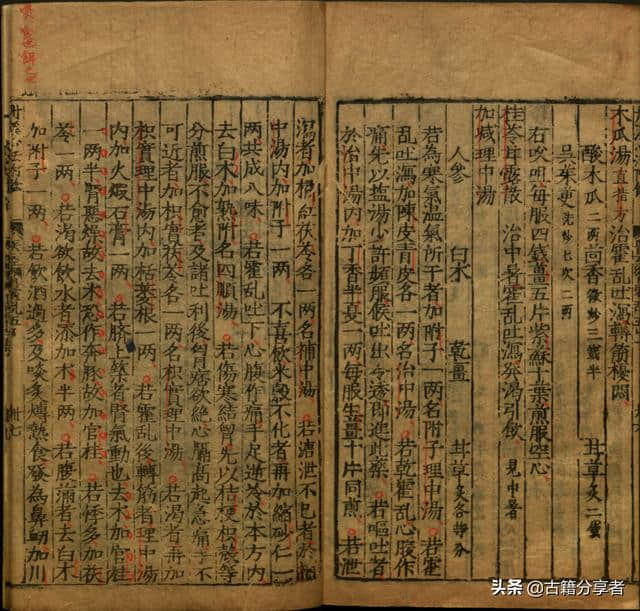 木瓜湯 直指方 治霍乱吐瀉轉筋悶
酸木瓜二兩 茴香微炒三錢半 甘草炙二錢
吳茱萸洗炒七次二兩
右㕮咀每服四錢薑五片紫蘇十葉煎服空心
桂苓甘露散 治中暑霍乱吐瀉發渴引飲 見中暑
加減理中湯
人參 白朮 乾薑 甘草炙各等分
若為寒氣溫氣所干者加附子一兩名附子理中湯若霍
乱吐瀉加陳皮青皮各一兩名治中湯若乾霍乱心腹作
痛先以塩湯少許頻服候吐出令透即進此藥若嘔吐者
於治中湯內加丁香半夏一兩每服生薑十片同煎若泄
瀉者加橘紅茯苓各一兩名補中湯若溏泄不已者於補
中湯內加附子一兩不喜飲米穀不化者再加縮砂仁一
兩共成八味若霍乱吐下心腹作痛手足逆冷於本方內
去白朮加熟附名四順湯若傷寒結胷先以桔梗枳殼等
分煎服不愈者及諸吐利後胷痞欲絕心膈高起急痛手不
可近者加枳實茯苓各一兩名枳實理中湯若渴者再加
枳實理中湯內加栝蔞根一兩若霍乱後轉筋者理中湯
內加火煆石膏一兩若臍上築者腎氣動也去朮加官桂
一兩半腎惡燥故去朮恐作奔豚故加官桂若悸多加茯
苓一兩若渴欲飲水者添加朮半兩若腹滿者去白朮
加附子一兩若飲酒過多及啖炙煿熱食發為鼻衄加川
卅七
头条 @古籍分享者